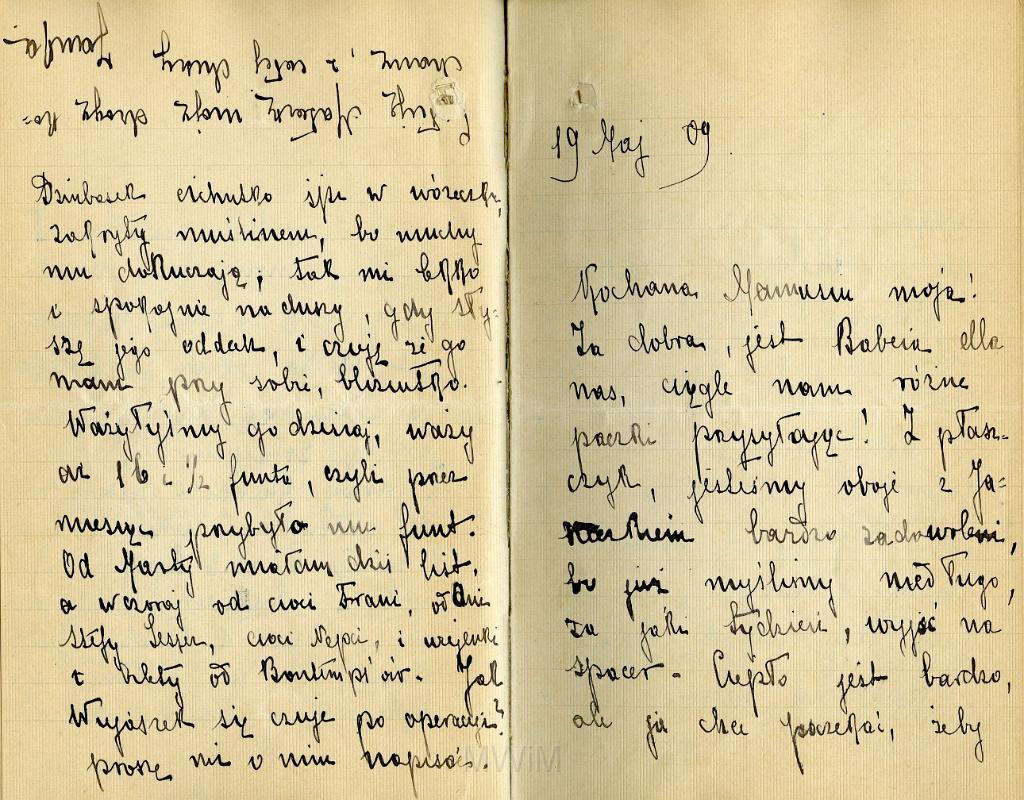 19 Maj 09.
Kochana Mamusiu moja!
Za dobra, jest Babcia dla
nas, ciągle nam różne
paczki przysyłając! Z płasz-
czyk, jesteśmy oboje z Ja-
neczkiem bardzo zadowoleni,
bo już myślimy niedługo,
za jaki tydzień, wyjść na
spacer. Ciepło jest bardzo,
ale ja chcę poczekać, żeby
Dziubasek cichutko śpi w wózeczku,
zakryty muślinem, bo muchy
mu dokuczają, tak mi błogo
i spokojnie na duszy, gdy sły-
szę jego oddech, i czuję że go
mam przy sobie, bliziutko.
Ważyłyśmy go dzisiaj, waży
aż 16 i 1/2 funta, czyli przez
miesiąc przybyło mu funt.
Od Marty miałam dziś list,
a wczoraj od cioci Frani, od
Stefy cioci i wujenki
i od Jak
Wujaszek się czuje po operacyi?
proszę mi o nim napisać.
Mateczkę moją drogą ko-
chaną, z całej duszy Janka.
MWiM